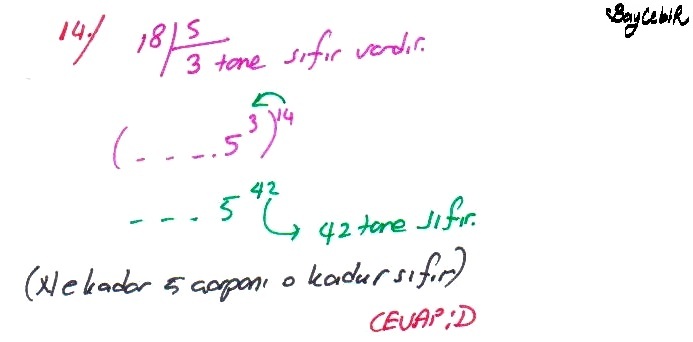 BayCebiR
14-) 18 | 5
3 tane sıfır vardır.
(- - - . . 5³)¹⁴
- - - . 5⁴² → 42 tane sıfır.
(Ne kadar 5 çarpanı o kadar sıfır)
CEVAP: D